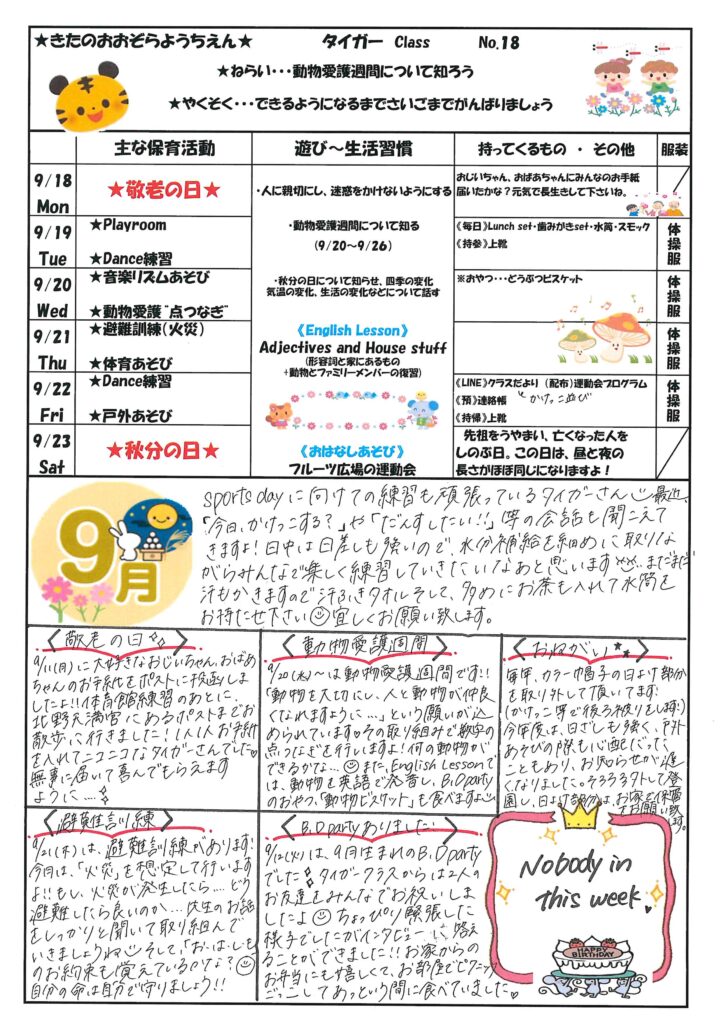 ★きたのおおぞらようちえん★ タイガー Class No.18
★ねらい・・・動物愛護週間について知ろう
★やくそく・・・できるようになるまでさいごまでがんばりましょう
主な保育活動 遊び～生活習慣 持ってくるもの ・ その他 服装
9/18
Mon
★敬老の日★
・人に親切にし、迷惑をかけないようにする
おじいちゃん、おばあちゃんにみんなのお手紙
届いたかな？元気で長生きして下さいね。
9/19
Tue
★Playroom
★Dance練習
・動物愛護週間について知る
(9/20～9/26)
《毎日》Lunch set・歯みがきset・水筒・スモック
《持参》上靴
体操服
9/20
Wed
★音楽リズムあそび
★動物愛護“点つなぎ”
・秋分の日について知らせ、四季の変化
気温の変化、生活の変化などについて話す
※おやつ・・・どうぶつビスケット
体操服
9/21
Thu
★避難訓練(火災)
★体育あそび
《English Lesson》
Adjectives and House stuff
(形容詞と家にあるもの
+動物とファミリーメンバーの復習)
体操服
9/22
Fri
★Dance練習
★戸外あそび
《LINE》クラスだより (配布)運動会プログラム
《預》連絡帳 かけっこ遊び
《持帰》上靴
体操服
9/23
Sat
★秋分の日★
《おはなしあそび》
フルーツ広場の運動会
先祖をうやまい、亡くなった人を
しのぶ日。この日は、昼と夜の
長さがほぼ同じになりますよ！
9月
sports dayに向けての練習も頑張っているタイガーさん 最近、
「今日、かけっこする？」や「だんすしたい!!」等の会話も聞こえて
きますよ！日中は日差しも強いので、水分補給を細めに取りな
がらみんなで楽しく練習していきたいなあと思います まだまだ
汗もかきますので汗ふきタオルそして、多めにお茶も入れて水筒を
お持たせ下さい 宜しくお願い致します。
〈敬老の日〉
9/11(月)に大好きなおじいちゃん、おばあ
ちゃんのお手紙をポストに投函しま
したよ!!体育館練習のあとに、
北野天満宮にあるポストまでお
散歩に行きました！1人1人お手紙
を入れてニコニコなタイガーさんでした
無事に届いて喜んでもらえます
ように…
〈動物愛護週間〉
9/20(水)～は動物愛護週間です!!
「動物を大切にし、人と動物が仲良
くなれますように…」という願いが込
められています その取り組みで数字の
点つなぎを行いますよ！何の動物がで
できるかな… また、English Lessonで
は、動物を英語で発音し、B.D party
のおやつ、「動物ビスケット」も食べますよ
〈おねがい〉
毎年、カラー巾目子の日よけ部分
を取り外して頂いてます!
(かけっこ等で後ろ被りをします!)
今年度は、日ざしも強く、戸外
あそびの際も心配だった
こともあり、お知らせが遅
くなりました。そろそろ外して登
園し、日よけ部分は、お家で保管
お願い致します。
〈避難訓練〉
9/21(木)は、避難訓練があります!
今月は、「火災」を想定して行います
よ!!もし、火災が発生したら…どう
避難したら良いのか…先生のお話
をしっかりと聞いて取り組んで
いきましょうね そして、「お・は・し・も」
のお約束も覚えているかな？
自分の命は自分で守りましょう!!
〈B.D partyありました〉
9/12(火)は、9月生まれのB.D party
でした タイガークラスからは2人の
お友達をみんなでお祝いしま
したよ ちょっぴり緊張した
様子でしたがインタビューに答え
ることができました!!お家からの
お弁当にも喜しくて、お部屋でピクニック
ごっこしてあっという間に食べていました
Nobody in
this week.
HAPPY
BIRTHDAY